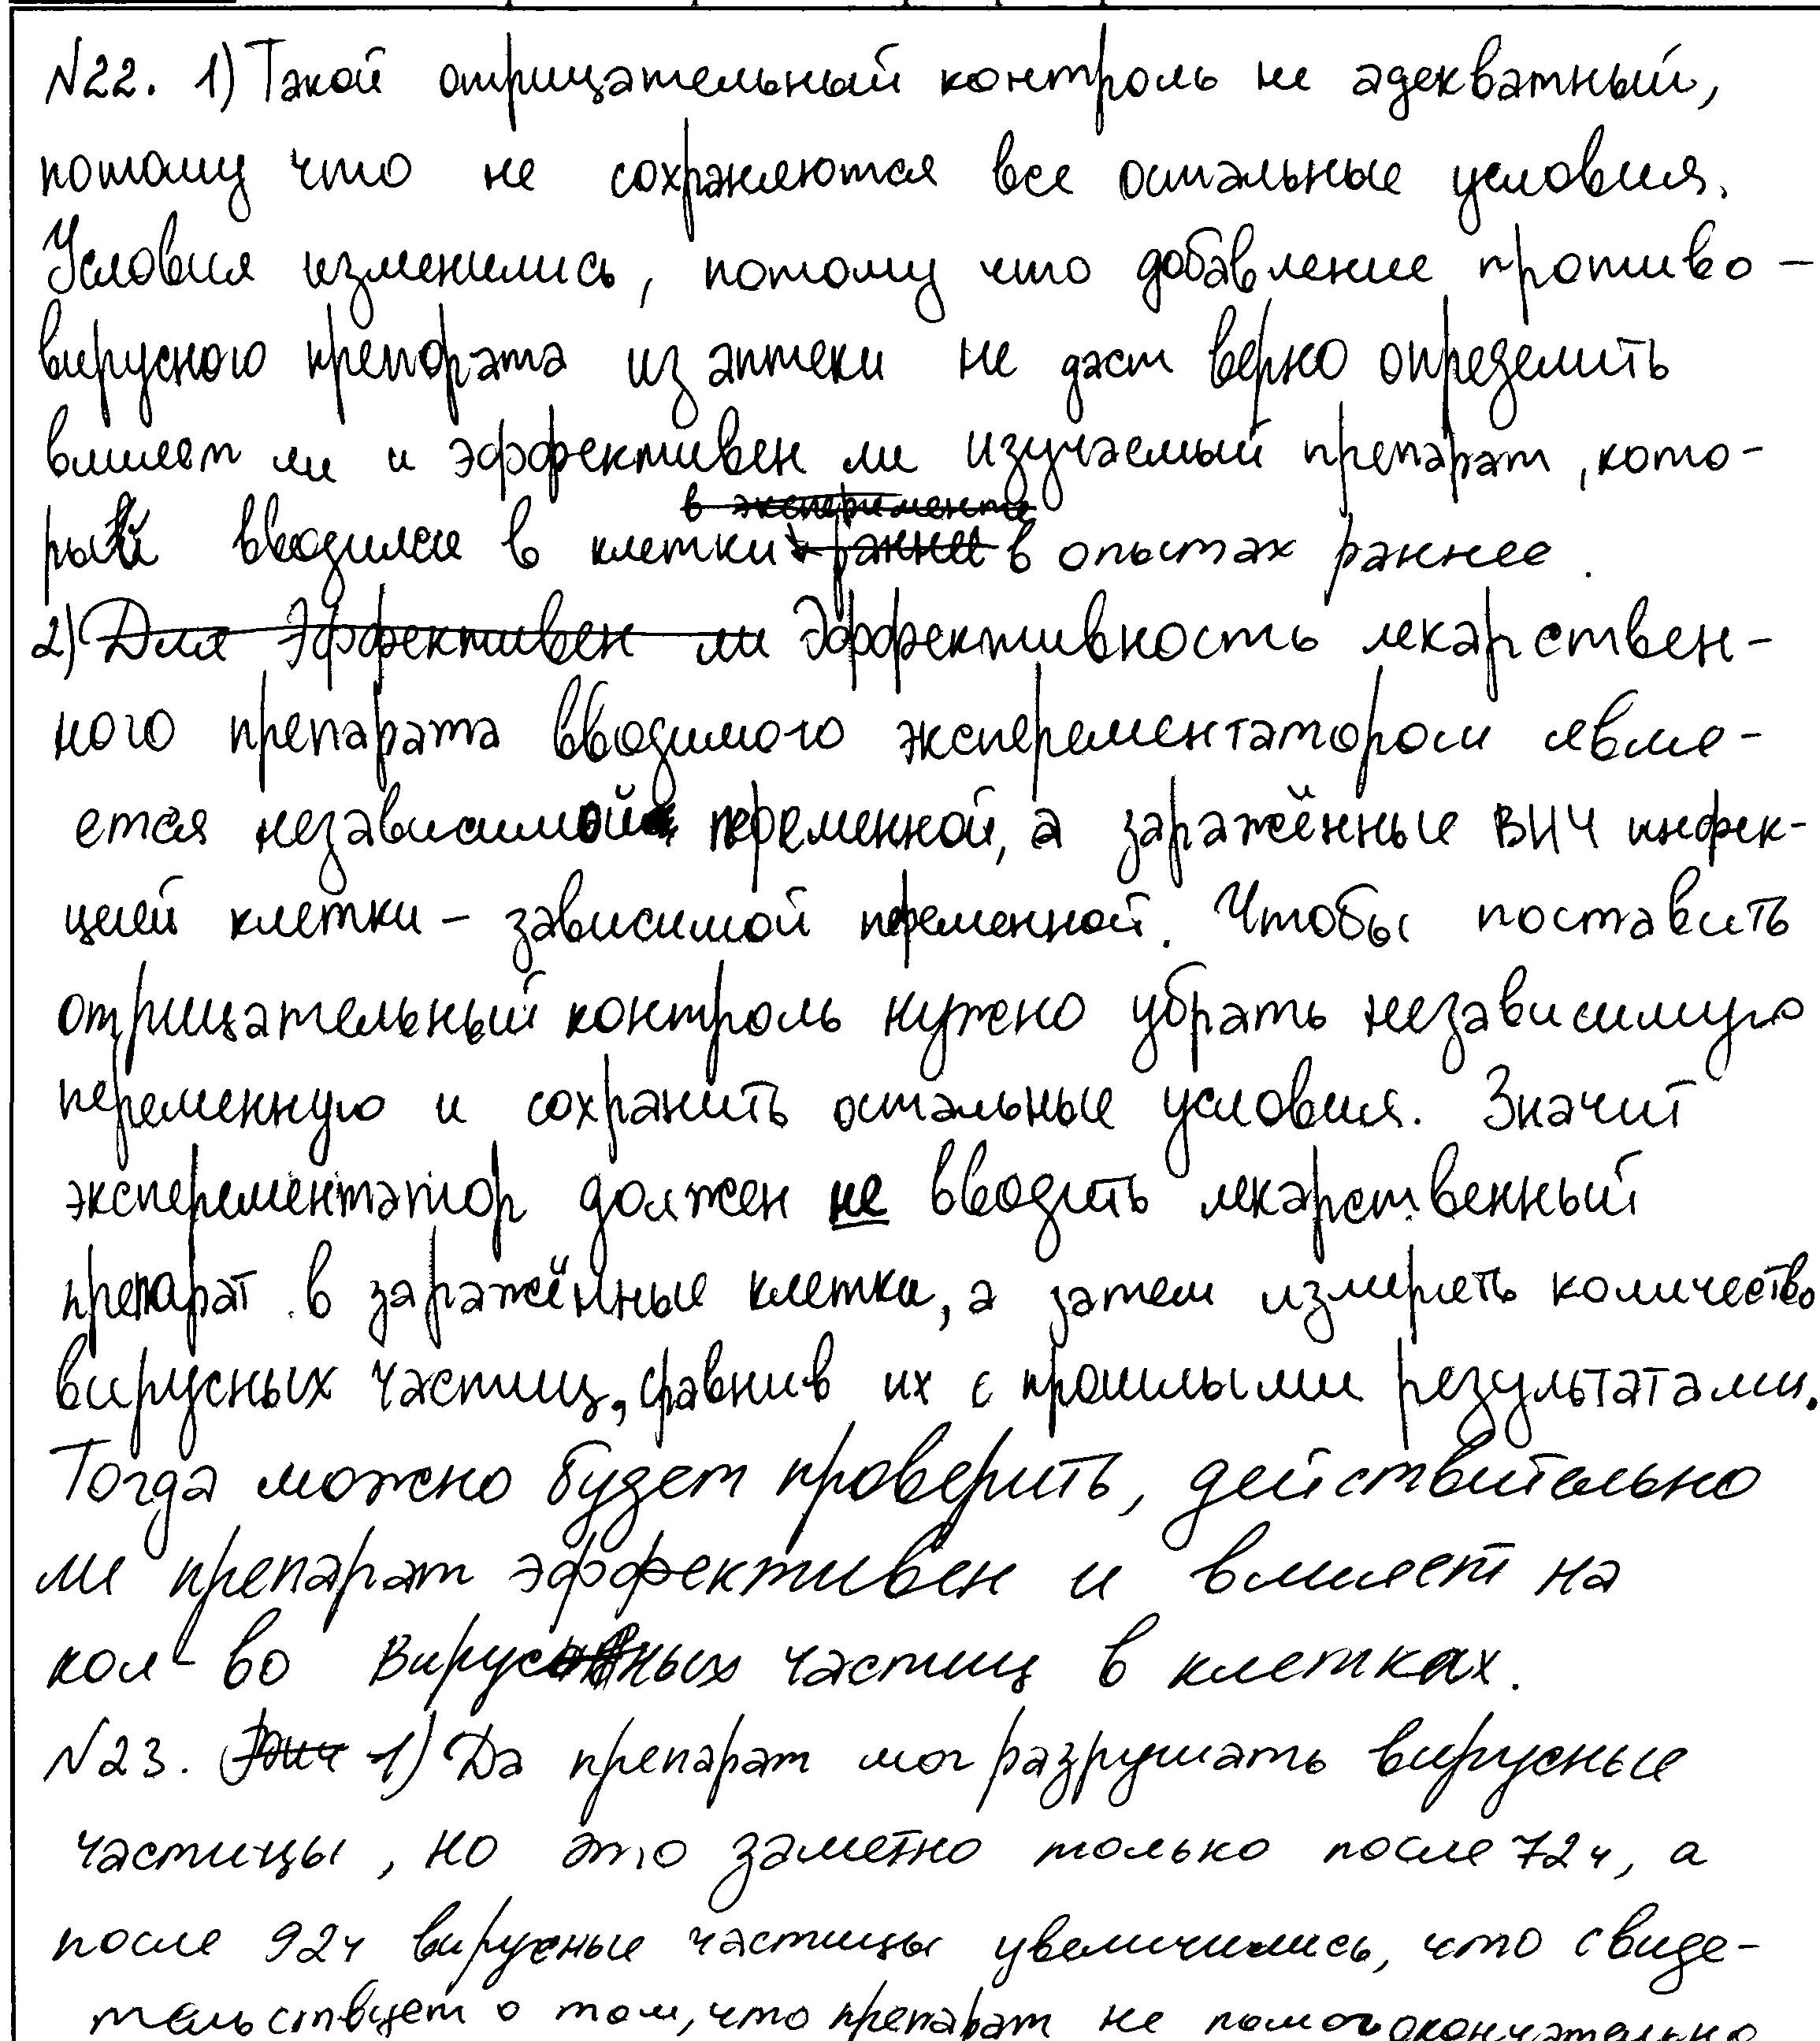 №22. 1) Такой отрицательный контроль не адекватный,
потому что не сохраняются все остальные условия.
Условия изменились, потому что добавление противо-
вирусного препората из аптеки не даст верно определить
влияет ли и эффективен ли изучаемый препарат, кото-
в эксперименте
рый вводился в клетки раннее в опытах раннее.
2) Для Эффективен ли Эффективность лекарствен-
ного препарата вводимого эксперементатором явля-
ется независимой переменной, а заражённые ВИЧ инфек-
цией клетки – зависимой переменной. Чтобы поставить
отрицательный контроль нужно убрать независимую
переменную и сохранить остальные условия. Значит
эксперементатор должен не вводить лекарственный
препарат в заражённые клетки, а затем измерить количество
вирусных частиц, сравнив их с прошлыми результатами.
Тогда можно будет проверить, действительно
ли препарат эффективен и влияет на
кол-во вирусных частиц в клетках.
№23. 1) Да препарат мог разрушать вирусные
частицы, но это заметно только после 72ч, а
после 92ч вирусные частицы увеличились, что свиде-
тельствует о том, что препарат не помог окончательно